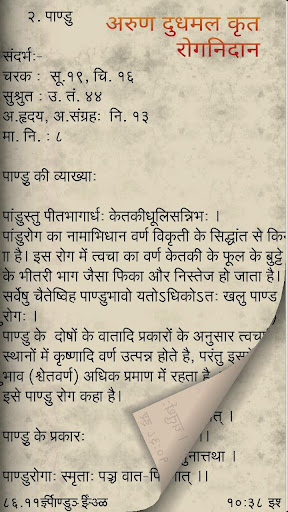 २. पाण्डु
अरुण दुधमल कृत
रोगनिदान
संदर्भः-
चरक : सू.१९, चि. १६
सुश्रुत : उ. तं. ४४
अ.हृदय, अ.संग्रहः नि. १३
मा. नि. : ८
पाण्डु की व्याख्याः
पांडुस्तु पीतभागार्धः केतकीधूलिसन्निभः ।
पांडुरोग का नामाभिधान वर्ण विकृती के सिद्धांत से कि
ा है। इस रोग में त्वचा का वर्ण केतकी के फूल के बुट्टे
के भीतरी भाग जैसा फिका और निस्तेज हो जाता है।
सर्वेषु चैतेष्विह पाण्डुभावो यतोऽधिकोऽतः खलु पाण्ड
रोगः ।
पाण्डु के दोषों के वातादि प्रकारों के अनुसार त्वचा
स्थानों में कृष्णादि वर्ण उत्पन्न होते है, परंतु इस
भाव (श्वेतवर्ण) अधिक प्रमाण में रहता है
इसे पाण्डु रोग कहा है।
पाण्डु के प्रकारः
पाण्डुरोगाः स्मृताः पञ्च वात-पि
१०:३८